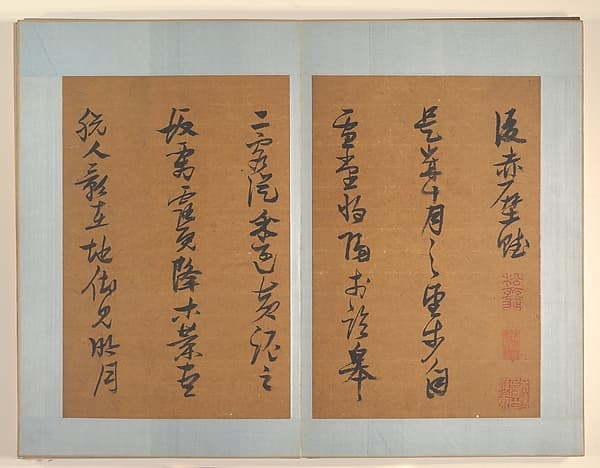 後赤壁賦
是歲十月之望步自
雪堂將歸于臨皋
二客從予過黃泥之
坂霜露既降木葉盡
脫人影在地仰見明月